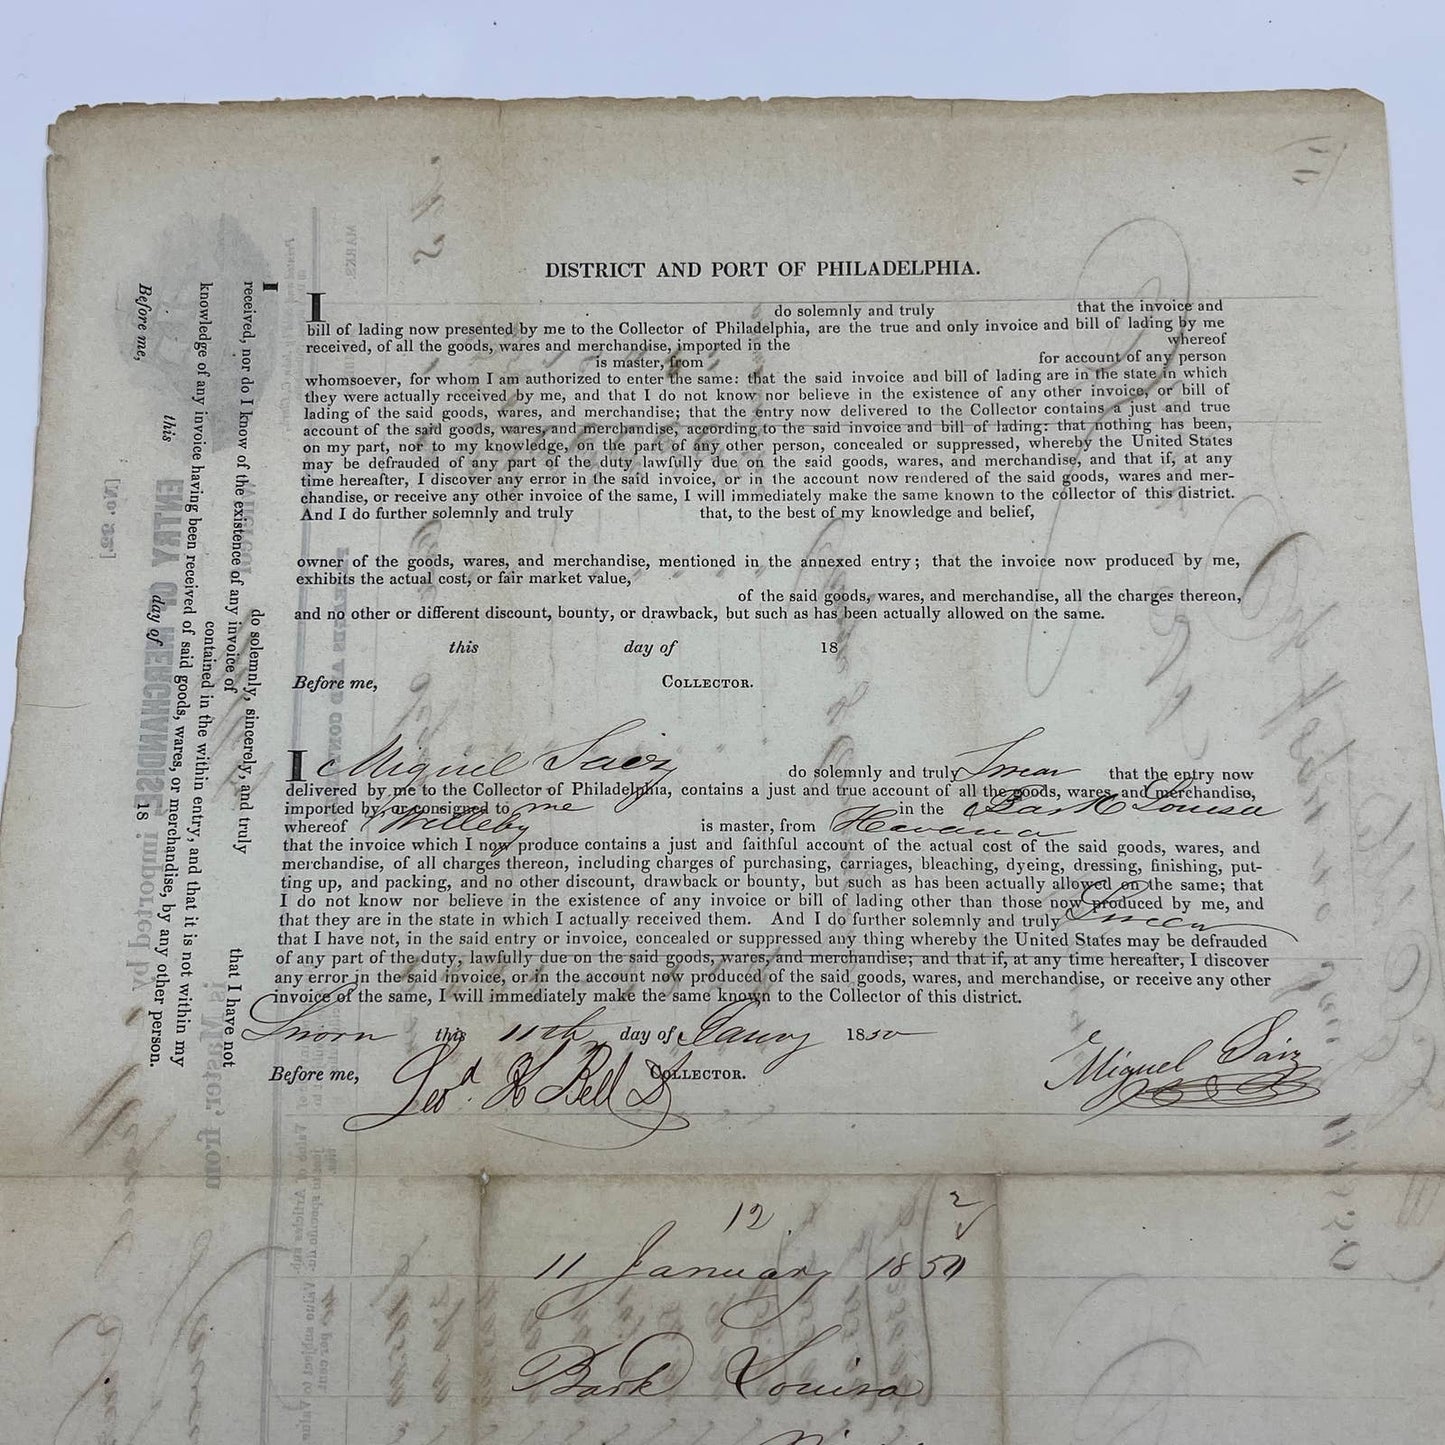 DISTRICT AND PORT OF PHILADELPHIA.
I do solemnly and truly that the invoice and
bill of lading now presented by me to the Collector of Philadelphia, are the true and only invoice and bill of lading by me
received, of all the goods, wares and merchandise, imported in the whereof
is master, from for account of any person
whomsoever, for whom I am authorized to enter the same: that the said invoice and bill of lading are in the state in which
they were actually received by me, and that I do not know nor believe in the existence of any other invoice, or bill of
lading of the said goods, wares, and merchandise; that the entry now delivered to the Collector contains a just and true
account of the said goods, wares, and merchandise, according to the said invoice and bill of lading: that nothing has been,
on my part, nor to my knowledge, on the part of any other person, concealed or suppressed, whereby the United States
may be defrauded of any part of the duty lawfully due on the said goods, wares, and merchandise, and that if, at any
time hereafter, I discover any error in the said invoice, or in the account now rendered of the said goods, wares and mer-
chandise, or receive any other invoice of the same, I will immediately make the same known to the collector of this district.
And I do further solemnly and truly that, to the best of my knowledge and belief,
owner of the goods, wares, and merchandise, mentioned in the annexed entry; that the invoice now produced by me,
exhibits the actual cost, or fair market value,
of the said goods, wares, and merchandise, all the charges thereon,
and no other or different discount, bounty, or drawback, but such as has been actually allowed on the same.
this day of 18
Before me, COLLECTOR.
I Miguel Saiz do solemnly and truly Swear that the entry now
delivered by me to the Collector of Philadelphia, contains a just and true account of all the goods, wares, and merchandise,
imported by, or consigned to me in the Bark Louisa
whereof Willeby is master, from Havana
that the invoice which I now produce contains a just and faithful account of the actual cost of the said goods, wares, and
merchandise, of all charges thereon, including charges of purchasing, carriages, bleaching, dyeing, dressing, finishing, put-
ting up, and packing, and no other discount, drawback or bounty, but such as has been actually allowed on the same; that
I do not know nor believe in the existence of any invoice or bill of lading other than those now produced by me, and
that they are in the state in which I actually received them. And I do further solemnly and truly Swear
that I have not, in the said entry or invoice, concealed or suppressed any thing whereby the United States may be defrauded
of any part of the duty, lawfully due on the said goods, wares, and merchandise; and that if, at any time hereafter, I discover
any error in the said invoice, or in the account now produced of the said goods, wares, and merchandise, or receive any other
invoice of the same, I will immediately make the same known to the Collector of this district.
Sworn this 11th day of Jany 1850
Before me, Geo. H Bell D COLLECTOR.
Miguel Saiz
12
11 January 1850
Bark Louisa
I do solemnly, sincerely, and truly that I have not
received, nor do I know of the existence of any invoice of
contained in the within entry, and that it is not within my
knowledge of any invoice having been received of said goods, wares, or merchandise, by any other person.
Before me, this day of 18